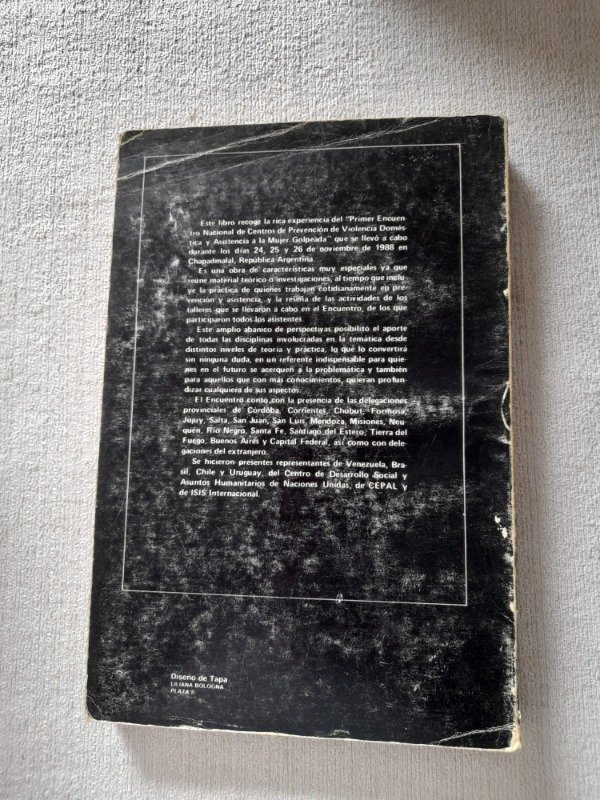 Este libro recoge la rica experiencia del "Primer Encuen-
tro Nacional de Centros de Prevención de Violencia Domés-
tica y Asistencia a la Mujer Golpeada" que se llevó a cabo
durante los días 24, 25 y 26 de noviembre de 1988 en
Chapadmalal, República Argentina.
Es una obra de características muy especiales ya que
reúne material teórico o investigaciones, al tiempo que inclu-
ye la práctica de quienes trabajan cotidianamente en pre-
vención y asistencia, y la reseña de las actividades de los
talleres que se llevaron a cabo en el Encuentro, de los que
participaron todos los asistentes.
Este amplio abanico de perspectivas posibilitó el aporte
de todas las disciplinas involucradas en la temática desde
distintos niveles de teoría y práctica, lo que lo convertirá
sin ninguna duda, en un referente indispensable para quie-
nes en el futuro se acerquen a la problemática y también
para aquellos que con más conocimientos, quieran profun-
dizar cualquiera de sus aspectos.
El Encuentro contó con la presencia de las delegaciones
provinciales de Córdoba, Corrientes, Chubut, Formosa,
Jujuy, Salta, San Juan, San Luis, Mendoza, Misiones, Neu-
quén, Río Negro, Santa Fe, Santiago del Estero, Tierra del
Fuego, Buenos Aires y Capital Federal, así como con dele-
gaciones del extranjero.
Se hicieron presentes representantes de Venezuela, Bra-
sil, Chile y Uruguay, del Centro de Desarrollo Social y
Asuntos Humanitarios de Naciones Unidas, de CEPAL y
de ISIS Internacional.
Diseño de Tapa
LILIANA BOLOGNA